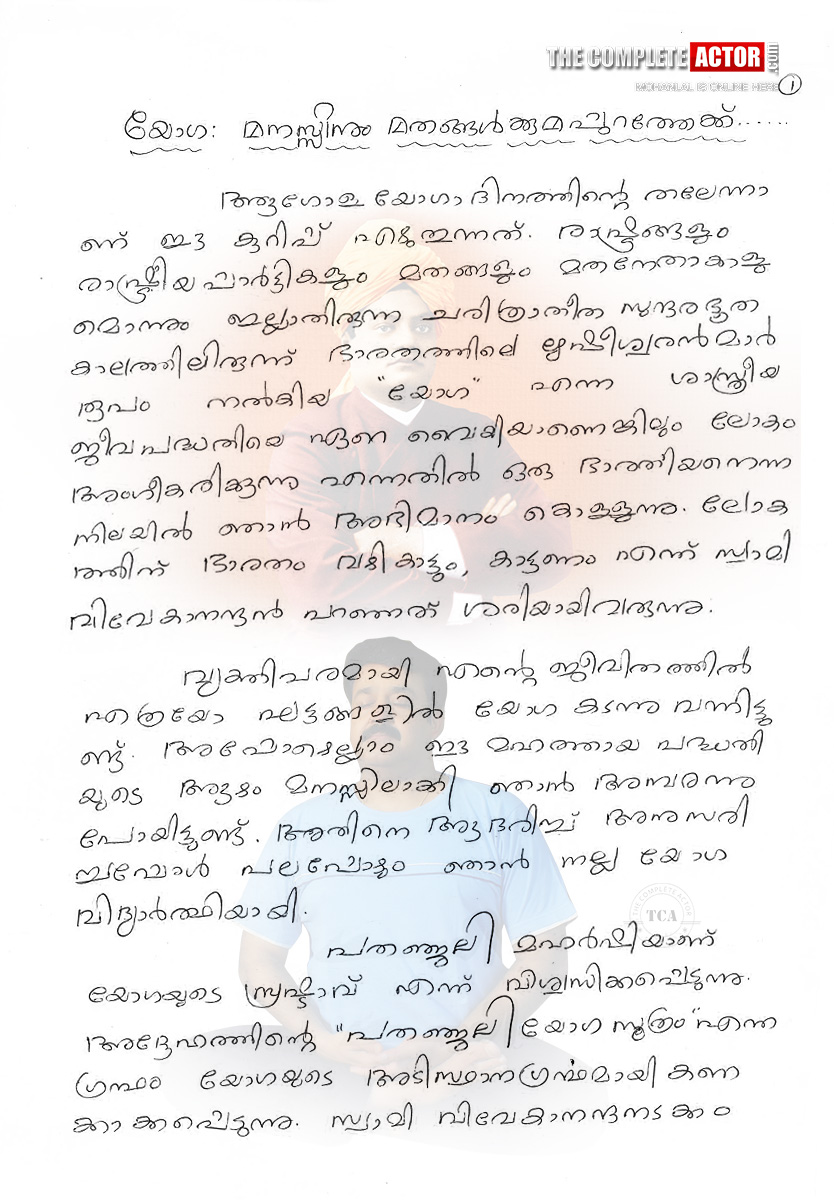 THE COMPLETE ACTOR .COM
MOHANLAL IS ONLINE HERE
1
യോഗ: മനസ്സിനും മതങ്ങൾക്കുമപ്പുറത്തേക്ക്......
ആഗോള യോഗാ ദിനത്തിന്റെ തലേന്നാ
ണ് ഈ കുറിപ്പ് എഴുതുന്നത്. രാഷ്ട്രങ്ങളും
രാഷ്ട്രീയപാർട്ടികളും മതങ്ങളും മതനേതാകളു
മൊന്നും ഇല്ലാതിരുന്ന ചരിത്രാതീത സുന്ദരഭൂത
കാലത്തിലിരുന്ന് ഭാരതത്തിലെ ഋഷീശ്വരൻമാർ
രൂപം നൽകിയ "യോഗ" എന്ന ശാസ്ത്രീയ
ജീവപദ്ധതിയെ ഏറെ വൈകിയാണെങ്കിലും ലോകം
അംഗീകരിക്കുന്നു എന്നതിൽ ഒരു ഭാരതീയനെന്ന
നിലയിൽ ഞാൻ അഭിമാനം കൊള്ളുന്നു. ലോക
ത്തിന് ഭാരതം വഴികാട്ടും, കാട്ടണം എന്ന് സ്വാമി
വിവേകാനന്ദൻ പറഞ്ഞത് ശരിയായിവരുന്നു.
വ്യക്തിപരമായി എന്റെ ജീവിതത്തിൽ
എത്രയോ ഘട്ടങ്ങളിൽ യോഗ കടന്നു വന്നിട്ടു
ണ്ട്. അപ്പോഴെല്ലാം ഈ മഹത്തായ പദ്ധതി
യുടെ ആഴം മനസ്സിലാക്കി ഞാൻ അമ്പരന്നു
പോയിട്ടുണ്ട്. അതിനെ ആദരിച്ച് അനുസരി
ച്ചപ്പോൾ പലപ്പോഴും ഞാൻ നല്ല യോഗ
വിദ്യാർത്ഥിയായി.
TCA
പതഞ്ജലി മഹർഷിയാണ്
യോഗയുടെ സ്രഷ്ടാവ് എന്ന് വിശ്വസിക്കപ്പെടുന്നു.
അദ്ദേഹത്തിന്റെ "പതഞ്ജലി യോഗ സൂത്രം" എന്ന
ഗ്രന്ഥം യോഗയുടെ അടിസ്ഥാനഗ്രന്ഥമായി കണ
ക്കാക്കപ്പെടുന്നു. സ്വാമി വിവേകാനന്ദനടക്കം